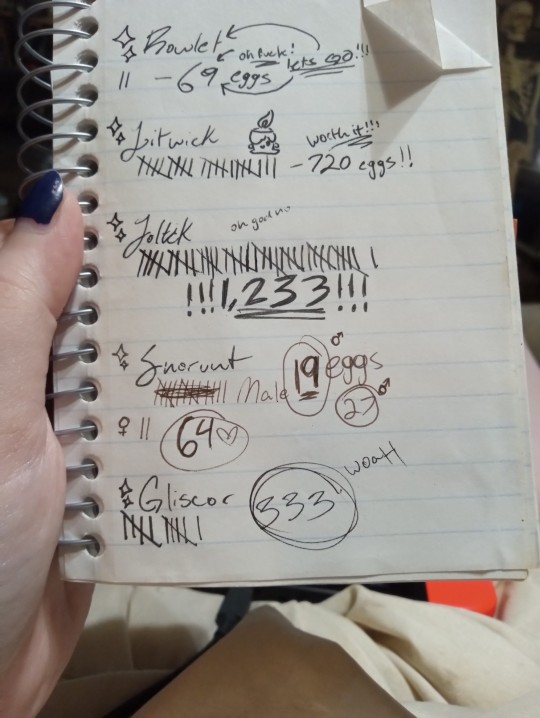 Rowlet
oh fuck! lets go!!!
|| - 69 eggs
Litwick worth it!!!
- 720 eggs!!
Joltik oh god no
!!!1,233!!!
Snorunt
Male 19 ♂ eggs
27 ♂
♀ || 64 ♡
Gliscor 333 WOAH